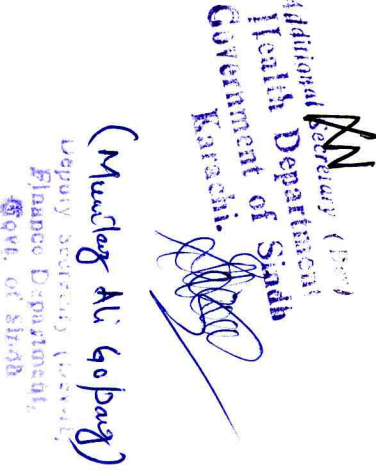 Additional Secretary (Dev)
Health Department
Government of Sindh
Karachi.
(Mumtaz Ali Gopang)
Deputy Secretary
Finance Department,
Govt. of Sindh